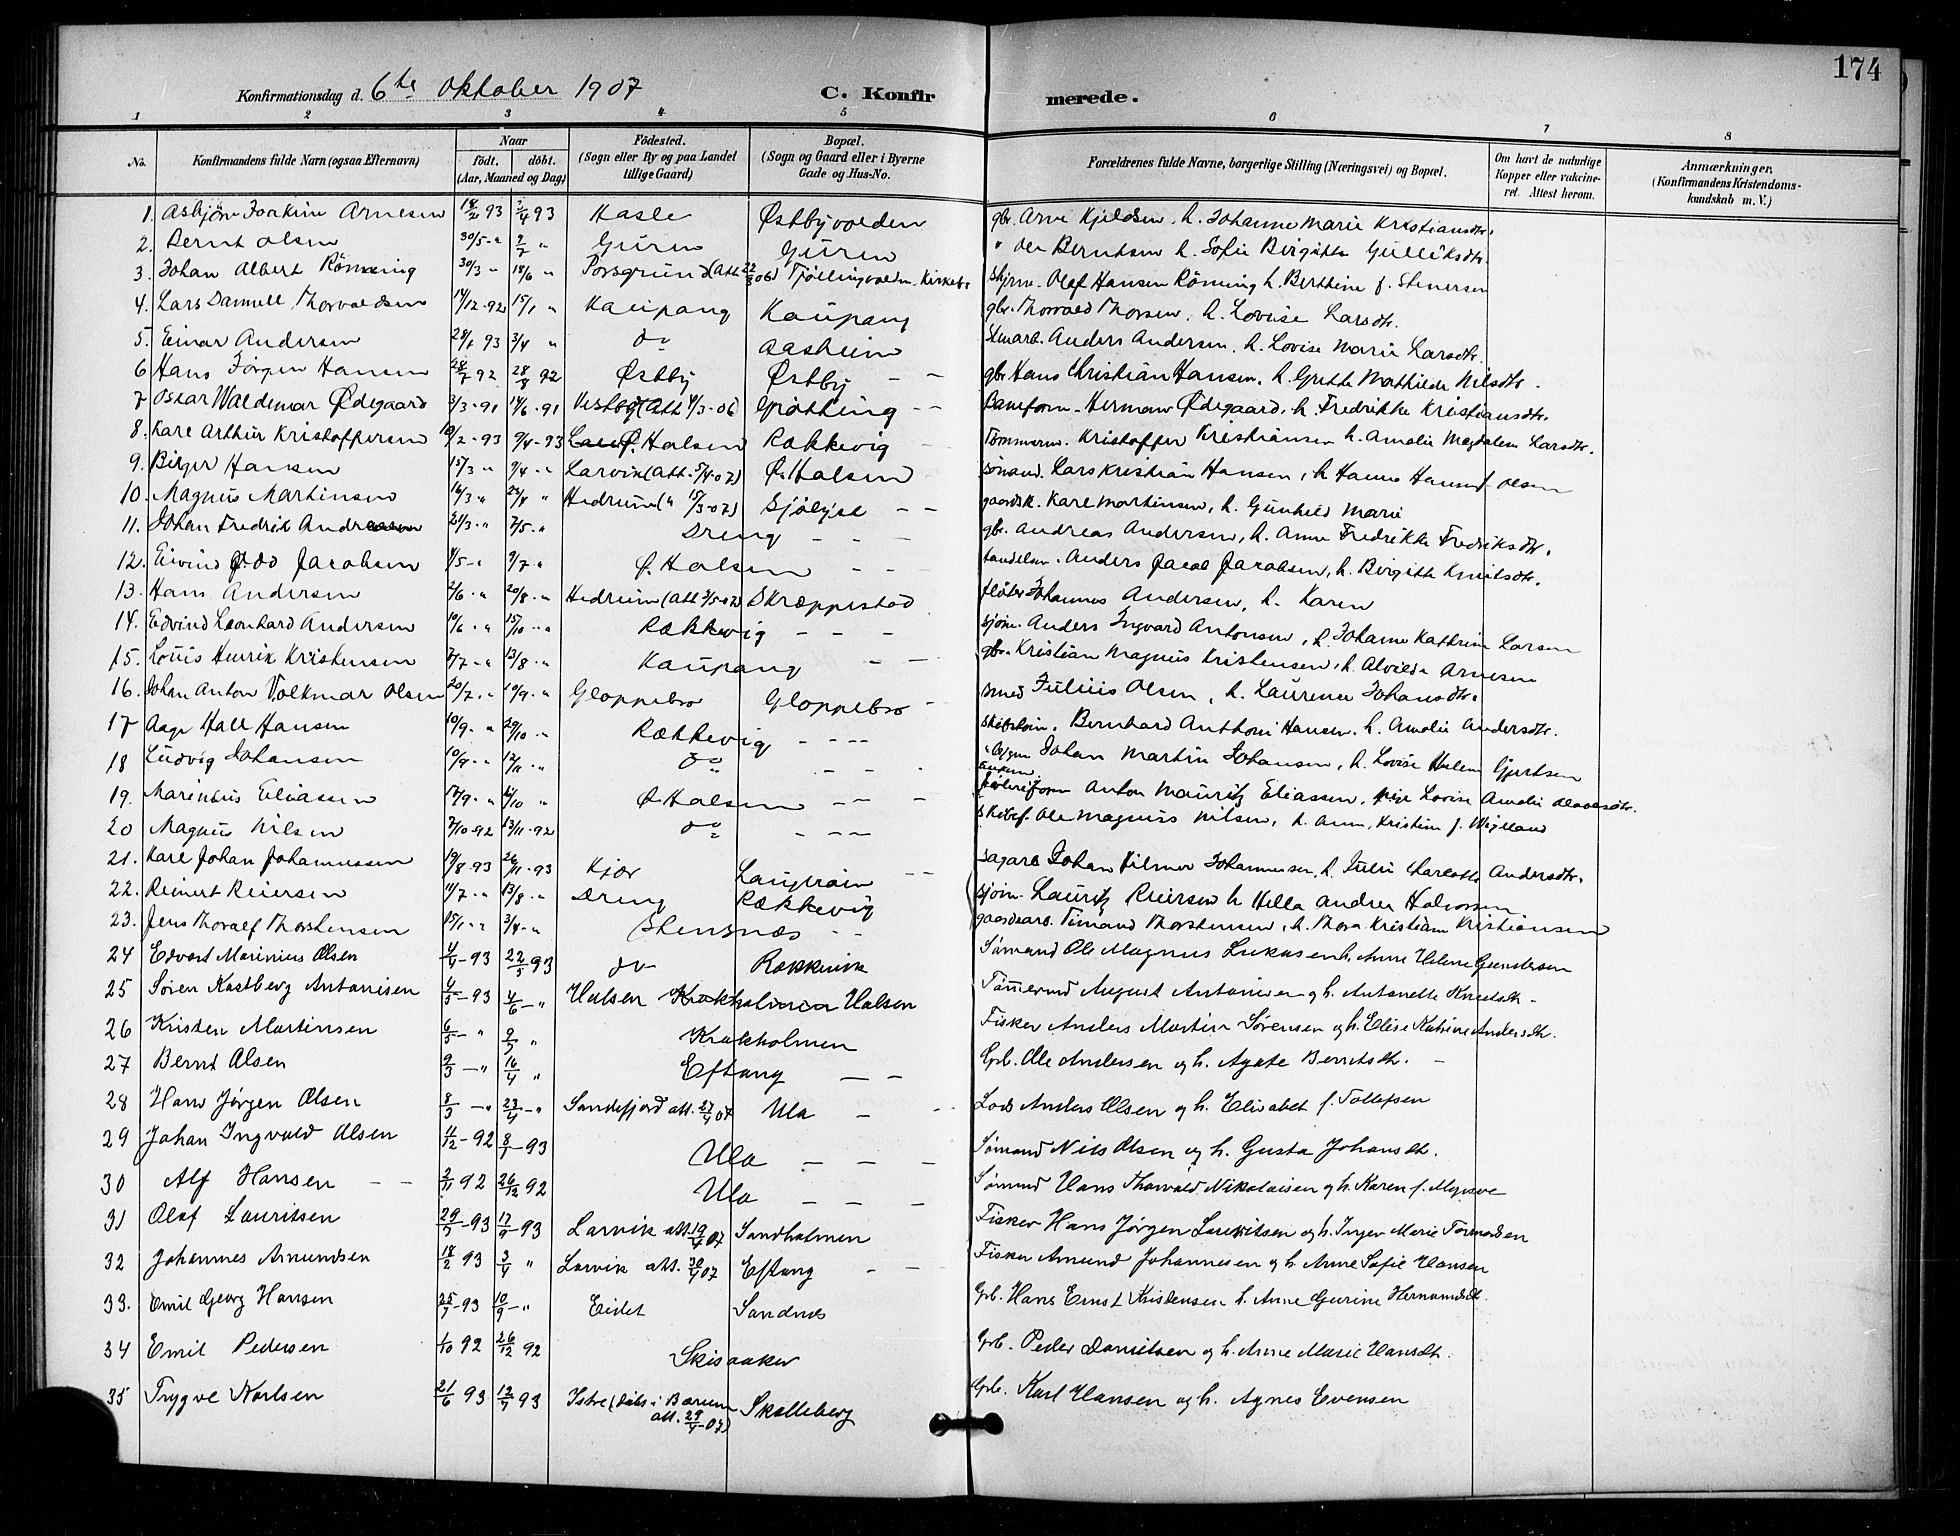 174
Konfirmationsdag d. 6te Oktober 1907 C. Konfir merede.
1 2 3 4 5 6 7 8
No. Konfirmandens fulde Navn (ogsaa Efternavn) Naar födt. döbt. (Aar, Maaned og Dag) Födested. (Sogn eller By og paa Landet tillige Gaard) Bopæl. (Sogn og Gaard eller i Byerne Gade og Hus-No. Forældrenes fulde Navne, borgerlige Stilling (Næringsvei) og Bopæl. Om havt de naturlige Kopper eller vakcineret. Attest herom. Anmærkninger. (Konfirmandens Kristendomskundskab m. V.)
1. Asbjørn Joakim Arnesen 18/2 93 3/4 93 Hasle Østbyvolden gbr. Arne Kjeldsen, h. Johanne Marie Kristiansdtr.
2. Bernt Olsen 30/5 - " 9/7 " Guren Guren " Ole Berntsen h. Sofie Birgitte Gulliksdtr.
3. Johan Albert Rönning 30/3 - " 18/6 " Porsgrund (Att. 22/3 06) Tjöllingvolden Kirkeb. Olaf Hansen Rönning h. Berthine f. Stenersen
4. Lars Daniell Thorvaldsen 14/12-92 15/1 " Kaupang Kaupang gbr. Thorvald Thorsen, h. Lovise Larsdtr.
5. Einar Andersen 28/1 93 3/4 " do Aasheim Stenarb. Anders Andersen, h. Lovise Marie Larsdtr.
6 Hans Jørgen Hansen 28/7 92 28/8 92 Østby Østby - - gbr Hans Christian Hansen, h. Grethe Mathilde Nilsdtr.
7 Oskar Waldemar Ødegaard 3/3-91 14/6-91 Vestby (Att 4/3-06) Grötting - - Baneform. Herman Ødegaard, h. Fredrikke Kristiansdtr.
8. Kare Arthur Kristoffersen 10/2-93 9/4-93 Ø. Halsen Rækkevig - Tömmerm. Kristoffer Kristiansen h. Amalie Magdalene Larsdtr.
9. Birger Hansen 15/3 " 9/4 - " Larvik (Att. 5/4-07) Ø. Halsen - sömand. Lars Kristian Hansen, h Hanne Hansen f. Olsen
10. Magnus Martinsen 16/3 " 24/4 " Hedrum (" 15/3-07) Sjölyst - - gaardsk. Karl Martinsen, h. Gunhild Marie
11. Johan Fredrik Andreassen 21/3 - " 7/5 - " Dreng - - - gbr. Andreas Andersen, h. Anne Fredrikke Fredriksdtr.
12. Eivind Odd Jacobsen 4/5 - " 9/7 - " Ø. Halsen - - - handelsm. Anders Jacob Jacobsen, h. Birgitte Knutsdtr.
13. Hans Andersen 2/6 - " 20/8 - " Hedrum (Att 3/5-07) Skræppestad fløter Johannes Andersen, h. Karen
14. Edvind Leonhard Andersen 10/6 - " 15/10 - " Rækkevig - - - sjöm. Anders Ingvard Antonsen, h. Johanne Kathrine Larsen
15. Louis Henrik Kristensen 2/7 - " 13/8 - " Kaupang - - gbr. Kristian Magnus Kristensen, h. Alvilde Arnesen
16. Johan Anton Volkmar Olsen 20/7 - " 10/9 - " Gloppebro Gloppebro - smed Julius Olsen, h. Laurence Johansdtr.
17 Aage Hall Hansen 10/9 - " 29/10 - " Rækkevig - - - Bernhard Anthoni Hansen. h. Amalie Andersdtr.
18 Ludvig Johansen 10/9 - " 12/11 - " do - - - Johan Martin Johansen, h. Lovise Helene Gjertsen
19. Marentius Eliassen 17/9 - " 14/10 " Ø Halsen - - - Anton Mauritz Eliassen, pige Lovise Amalie Olavesdtr.
20 Magnus Nilsen 7/10-92 13/11-92 do - - - Ole Magnus Nilsen, h. Ann. Kristine f. Wigeland
21. Karl Johan Johannessen 19/8 93 26/11-93 Kjær Laugtroin - - sagarb Johan Hilmer Johannesen, h. Julie Charlotte Andersdtr.
22. Reinert Reiersen 11/7 - " 13/8 - " Dreng Rækkevig sjöm. Lauritz Reiersen h Hella Andrea Halvorsen
23. Jens Thoralf Thorstensen 15/1 - " 3/4 - " Stensnæs - - gaardsarb. Timand Thorstensen, h. Thora Kristiane Kristiansen
24 Edvart Marinius Olsen 4/4-93 22/5 93 do Rækkevik Sømand Ole Magnus Lukasen h. Anne Helene Gundersen
25 Søren Kastberg Antonisen 4/5-93 4/6 - " Halsen Krakholmen Halsen Tømmermd August Antonisen og h. Antonette Knudsdtr -
26 Kristen Martinsen 6/5 - " 9/7 " Krakholmen Fisker Anders Martin Sørensen og h. Elise Katrine Andersdtr.
27 Bernt Olsen 9/3 - " 16/4 " Eftang - - Grb. Ole Andersen og h. Agate Berntsdtr. -
28 Hans Jørgen Olsen 8/3 - " 23/4 - " Sandefjord att. 27/4 07 Ula - - Lods Anders Olsen og h. Elisabet f. Tollefsen
29 Johan Ingvald Olsen 11/12-92 8/1-93 Ula - - - Sømand Nils Olsen og h. Gusta Johansdtr.
30 Alf Hansen - - 2/11 92 26/12 92 Ula - - - Sømand Hans Thorvald Nikolaisen og h. Karen f. Mogsve
31 Olaf Lauritsen 29/7-93 17/9-93 Larvik att. 19/4 07 Sandholmen Fisker Hans Jørgen Lauritsen og h. Inger Marie Tormodsen
32 Johannes Amundsen 18/2 93 3/4 " Larvik att. 30/4 07 Eftang - - Fisker Amund Johannesen og h. Anne Sofie Hansen
33. Emil Georg Hansen 25/7-93 10/9 - " Eidet Sandnes Grb. Hans Ernst Kristensen h. Anne Gurine Hermandsdtr.
34 Emil Pedersen 1/10 92 26/12 92 Skisaaker Grb. Peder Danielsen og h. Anne Marie Hansdtr.
35 Trygve Karlsen 21/6 93 12/7 93 Istre (døbt i Bærum att. 29/4-07) Skalleberg Grb. Karl Hansen og h. Agnes Evensen